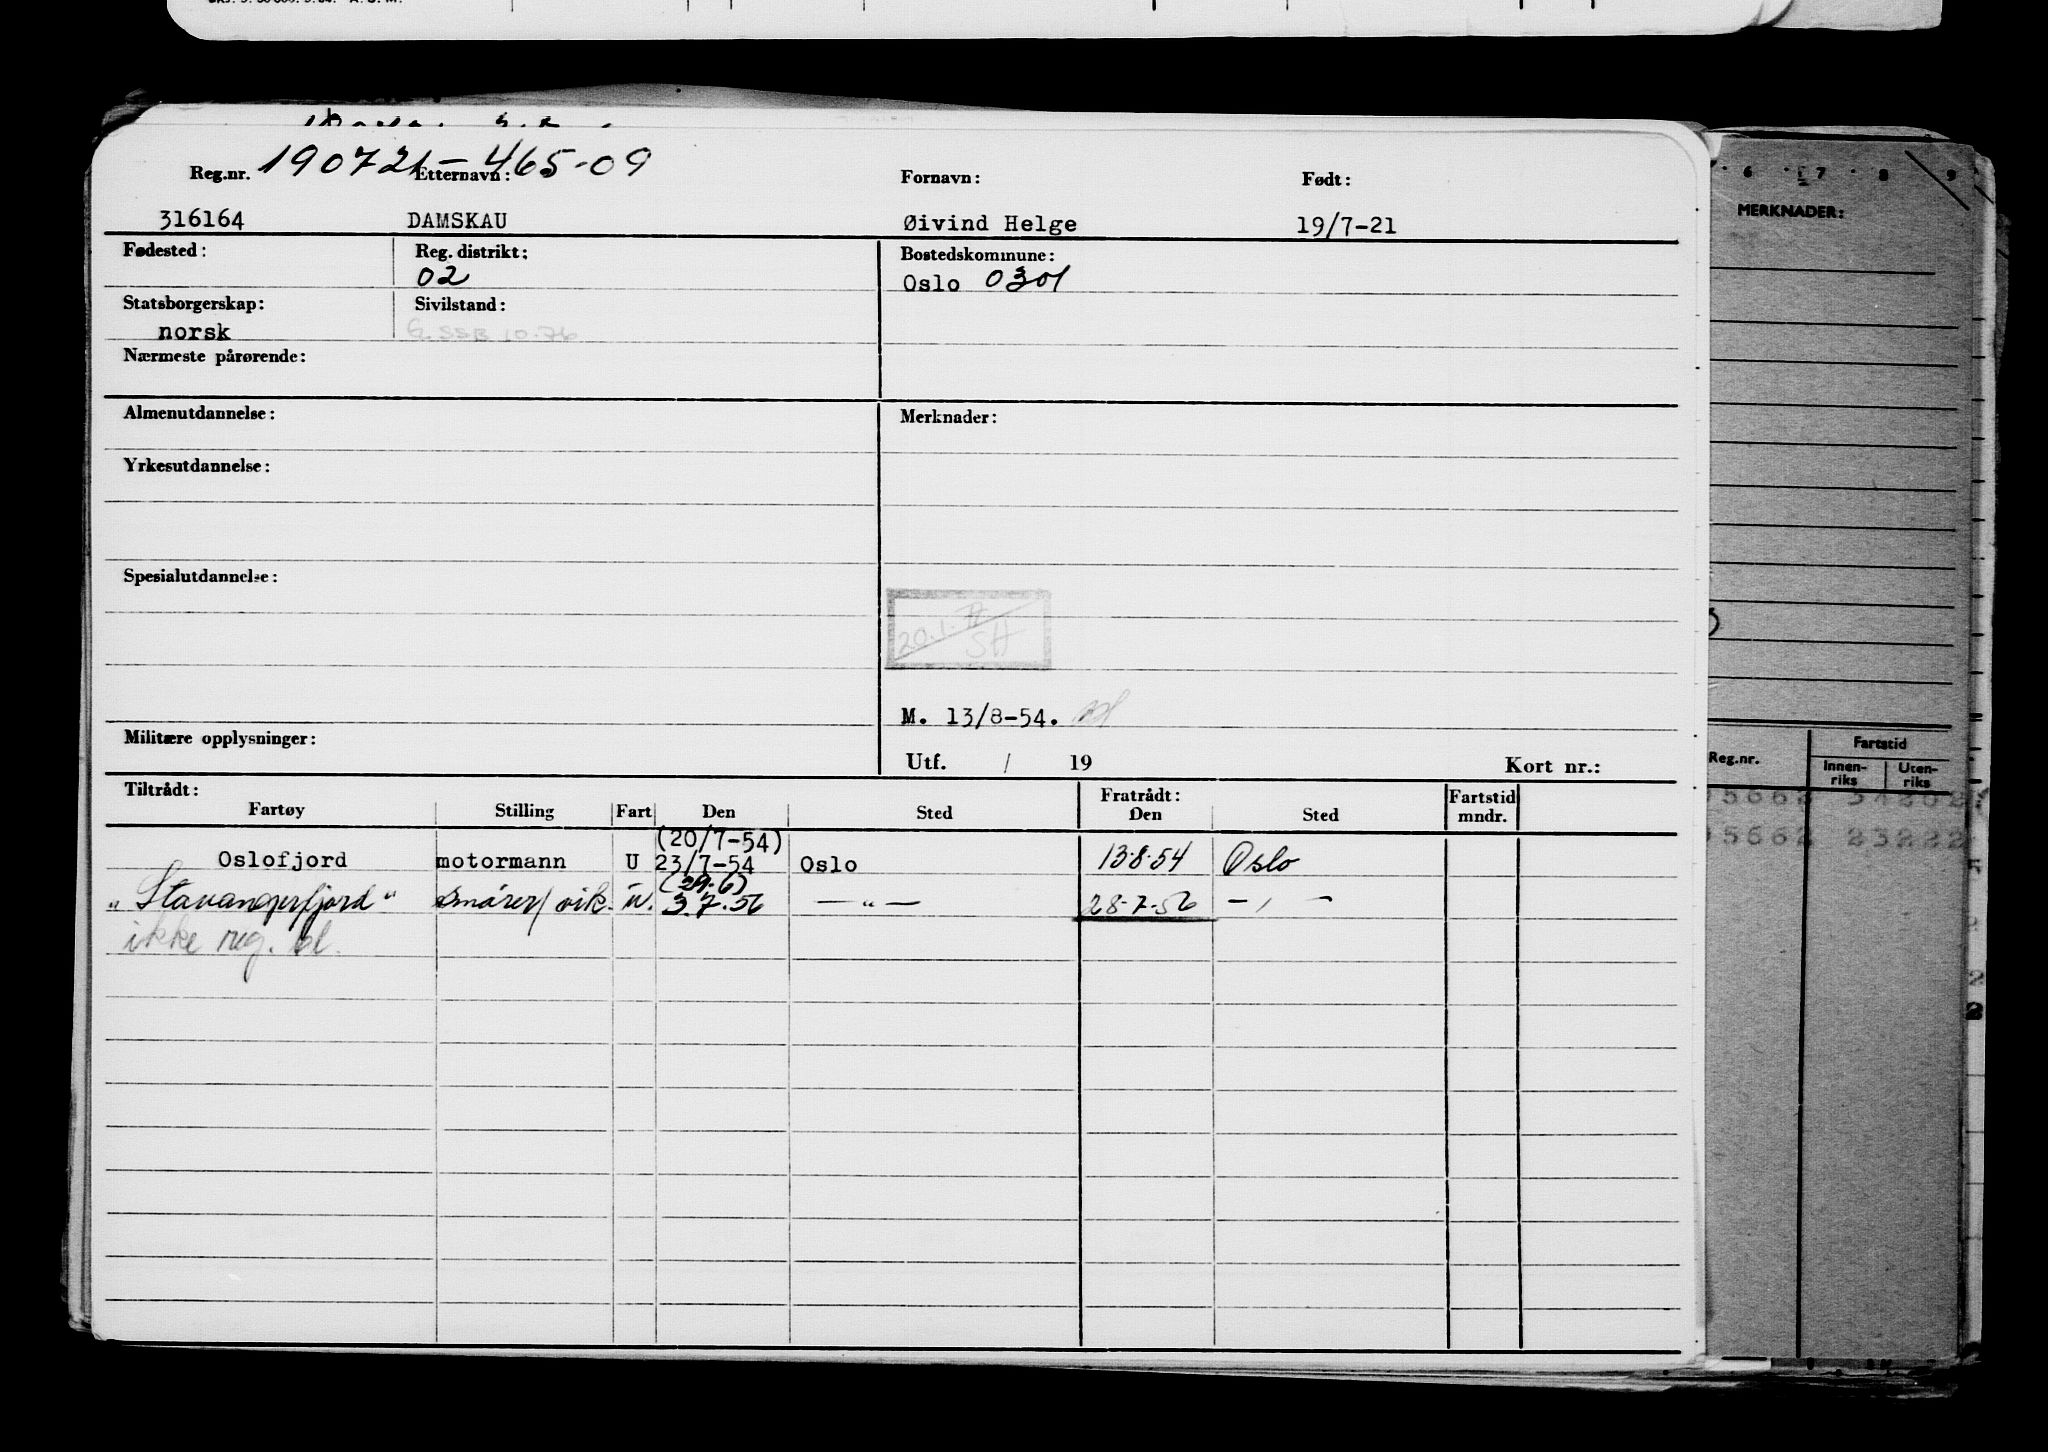 190721-465-09
Reg.nr. Etternavn: Fornavn: Født:
316164 DAMSKAU Øivind Helge 19/7-21
Fødested: Reg. distrikt: Bostedskommune:
02 Oslo 0301
Statsborgerskap: Sivilstand:
norsk G. SSB 10.76
Nærmeste pårørende:
Almenutdannelse: Merknader:
Yrkesutdannelse:
Spesialutdannelse:
20.1. SH
M. 13/8-54.
Militære opplysninger: Utf. / 19 Kort nr.:
Tiltrådt: Fratrådt: Fartstid
Fartøy Stilling Fart Den Sted Den Sted mndr.
(20/7-54)
Oslofjord motormann U 23/7-54 Oslo 13.8.54 Oslo
(29.6)
"Stavangerfjord" smører/vik. u. 3.7.56 — " — 28.7.56 - , -
ikke reg. bl.
6 7 8 9
MERKNADER:
Reg.nr. Fartstid
Innen-riks Uten-riks